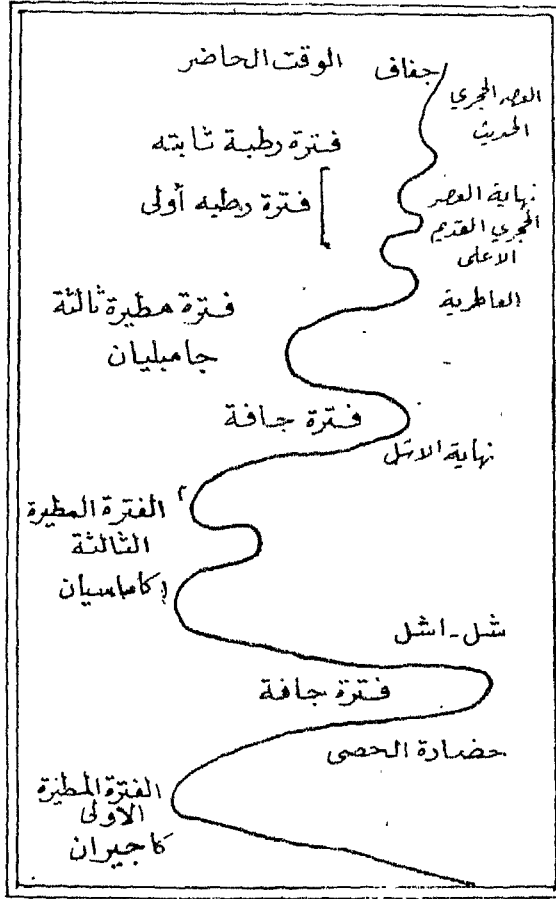 الوقت الحاضر
جفاف
العصر الحجري
الحديث
فترة رطبة ثابته
فترة رطبه أولى
نهاية العصر
الحجري القديم
الاعلى
العاطرية
فترة مطيرة ثالثة
جامبليان
فترة جافة
نهاية الاشل
٢
الفترة المطيرة
الثالثة
١
كاماسيان
شل - اشل
فترة جافة
حضارة الحصى
الفترة المطيرة
الأولى
كاجيران